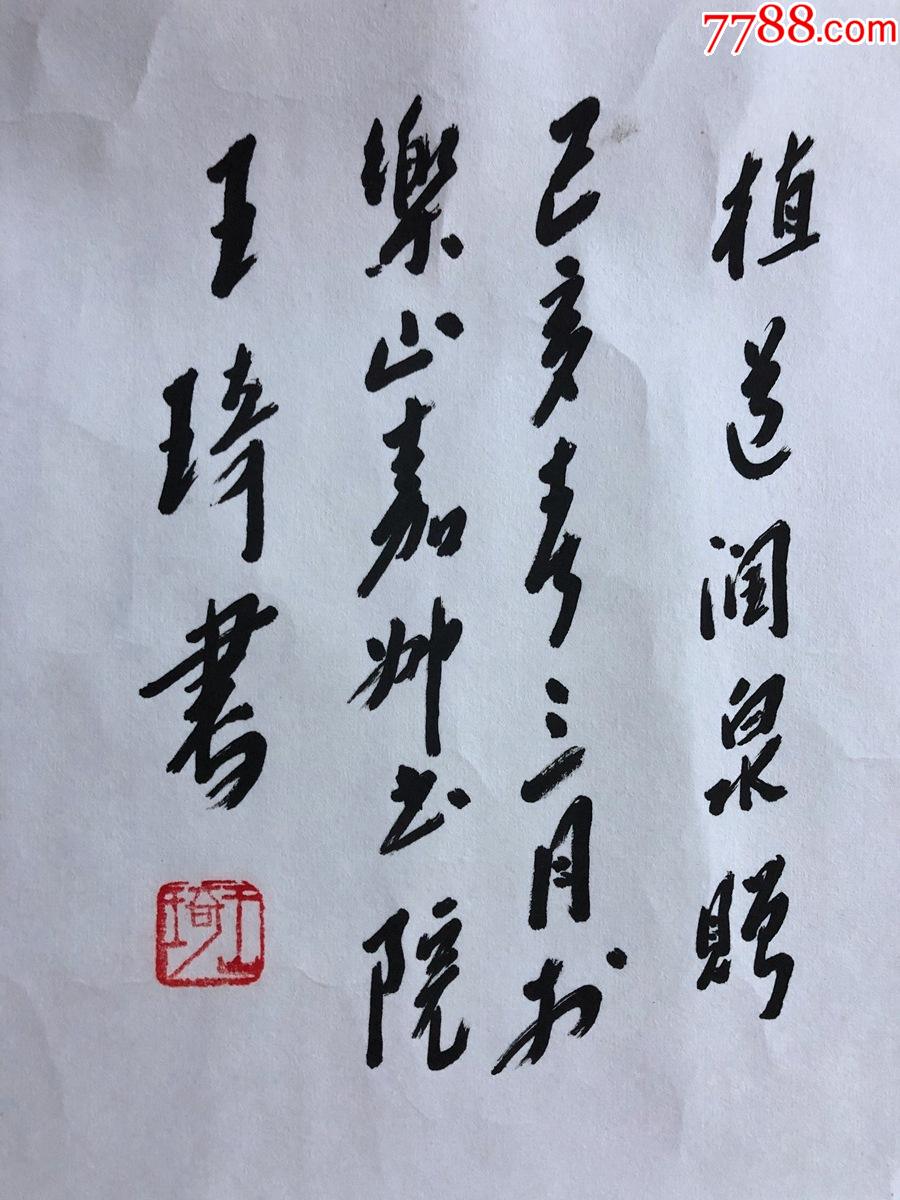 7788.com
植道润泉赐
己亥春三月於
樂山嘉州书院
王琦書
王琦